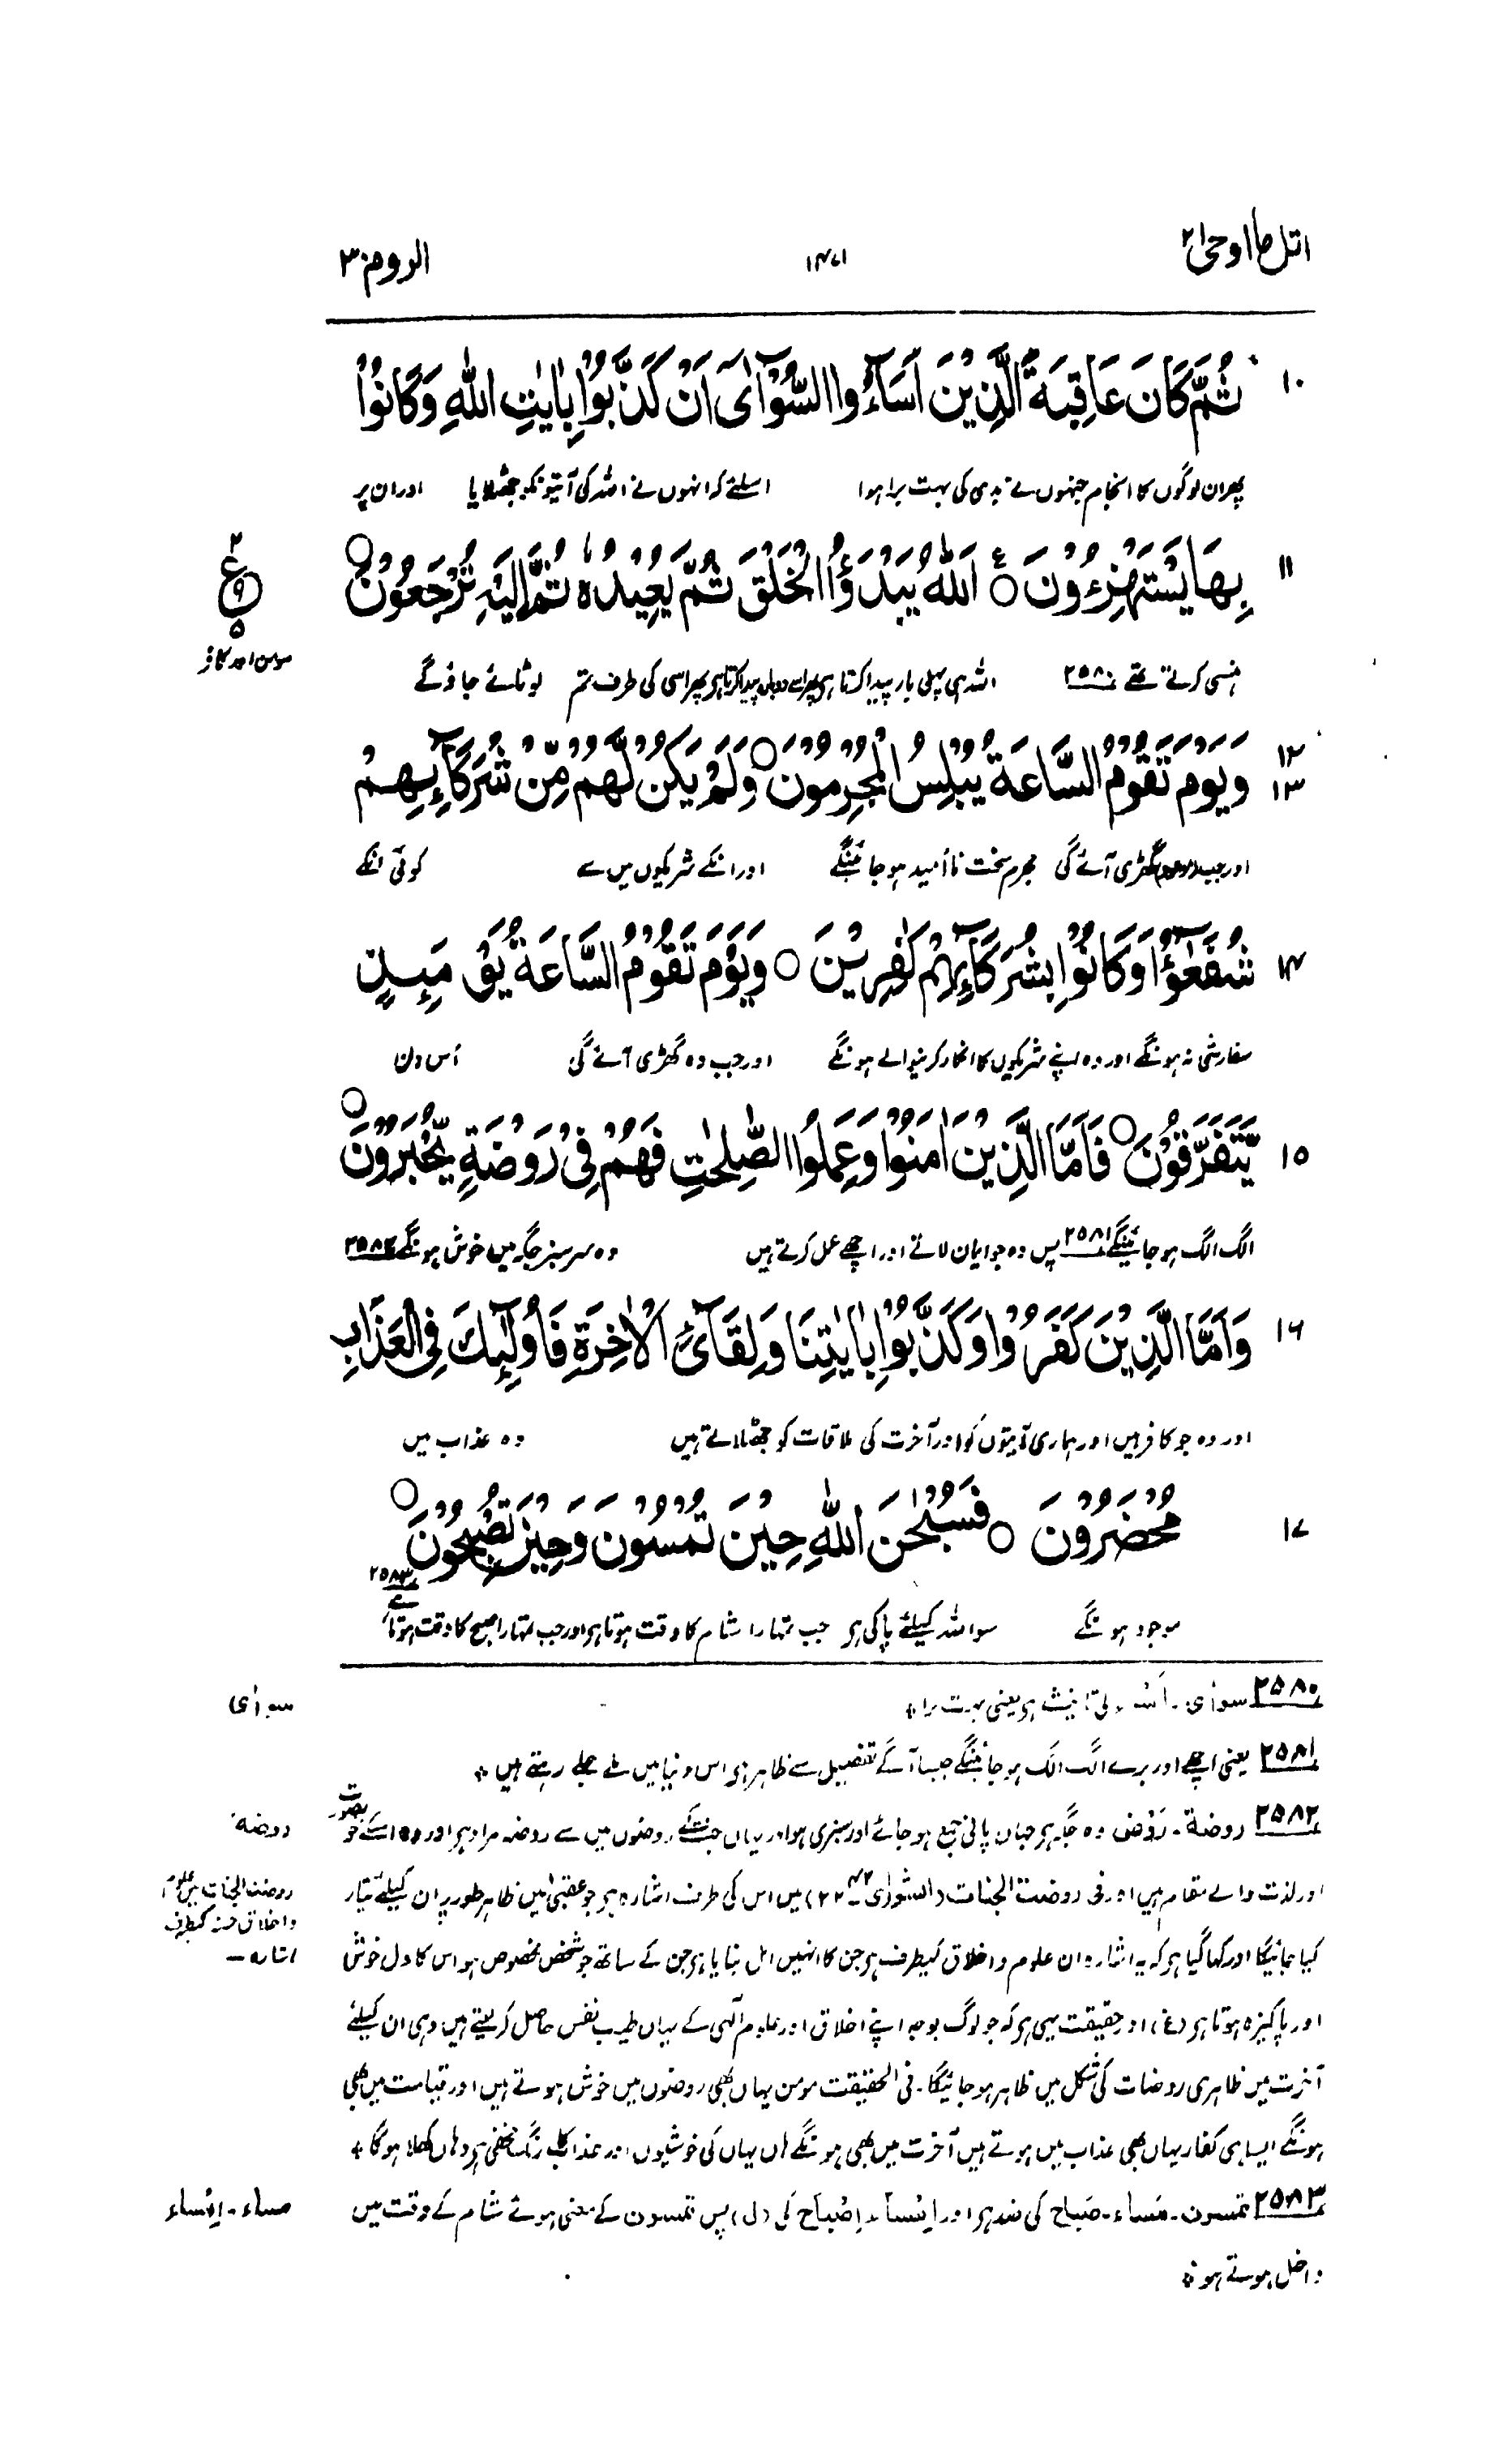 اتل ما اوحی ۲۱
۱۴۷۱
الروم ۳۰
۱۰ ثُمَّ كَانَ عَاقِبَةَ الَّذِيْنَ اَسَآءُوا السُّوْٓاٰى اَنْ كَذَّبُوْا بِاٰيٰتِ اللّٰهِ وَكَانُوْا
پھر ان لوگوں کا انجام جنہوں نے بدی کی بہت برا ہوا اسلئے کہ انہوں نے اللہ کی آیتونکو جھٹلایا اور ان پر
۱۱ بِهَا يَسْتَهْزِءُوْنَ ○ ع اَللّٰهُ يَبْدَؤُا الْخَلْقَ ثُمَّ يُعِيْدُهٗ ثُمَّ اِلَيْهِ تُرْجَعُوْنَ ○
۲ ع ۹ ۵
مومن اور کافر
ہنسی کرتے تھے ۲۵۸۰ اللہ ہی پہلی بار پیدا کرتا ہی پھر اسے دوبارہ پیدا کرتا ہی پھر اسی کی طرف تم لوٹائے جاؤ گے
۱۲ ۱۳ وَيَوْمَ تَقُوْمُ السَّاعَةُ يُبْلِسُ الْمُجْرِمُوْنَ ○ وَلَمْ يَكُنْ لَّهُمْ مِّنْ شُرَكَآئِهِمْ
اور جب (موعود) گھڑی آئے گی مجرم سخت نا اُمید ہو جائینگے اور انکے شریکوں میں سے کوئی انکے
۱۴ شُفَعٰٓؤُا وَكَانُوْا بِشُرَكَآئِهِمْ كٰفِرِيْنَ ○ وَيَوْمَ تَقُوْمُ السَّاعَةُ يَوْمَئِذٍ
سفارشی نہ ہونگے اور وہ اپنے شریکوں کا انکار کرنیوالے ہونگے اور جب وہ گھڑی آئے گی اُس دن
۱۵ يَّتَفَرَّقُوْنَ ○ فَاَمَّا الَّذِيْنَ اٰمَنُوْا وَعَمِلُوا الصّٰلِحٰتِ فَهُمْ فِيْ رَوْضَةٍ يُّحْبَرُوْنَ ○
الگ الگ ہو جائینگے ۲۵۸۱ پس وہ جو ایمان لاتے اور اچھے عمل کرتے ہیں وہ سرسبز جگہ میں خوش ہونگے ۲۵۸۲
۱۶ وَاَمَّا الَّذِيْنَ كَفَرُوْا وَكَذَّبُوْا بِاٰيٰتِنَا وَلِقَآئِ الْاٰخِرَةِ فَاُولٰٓئِكَ فِي الْعَذَابِ
اور وہ جو کافر ہیں اور ہماری آیتوں کو اور آخرت کی ملاقات کو جھٹلاتے ہیں وہ عذاب میں
۱۷ مُحْضَرُوْنَ ○ فَسُبْحٰنَ اللّٰهِ حِيْنَ تُمْسُوْنَ وَحِيْنَ تُصْبِحُوْنَ ○
موجود ہونگے سو اللہ کیلئے پاکی ہی جب تمہارا شام کا وقت ہوتا ہی اور جب تمہارا صبح کا وقت ہوتا ہے ۲۵۸۳
۲۵۸۰ سوأی۔ اَسْوَء کی تانیث ہی یعنی بہت برا ٭
سوأی
۲۵۸۱ یعنی اچھے اور برے الگ الگ ہو جائینگے جیسا آگے تفصیل سے ظاہر ہی اس دنیا میں ملے جلے رہتے ہیں ٭
۲۵۸۲ روضة۔ رَوْض وہ جگہ ہی جہاں پانی جمع ہو جائے اور سبزی ہو اور یہاں جنت کے روضوں میں سے روضہ مراد ہی اور وہ اسکے خوبصورت
روضة
اور لذت والے مقام ہیں اور فی روضت الجنات (الشورٰی ۴۲۔۲۲) میں اس کی طرف اشارہ ہی جو عقبیٰ میں ظاہر طور پر ان کیلئے تیار
روضت الجنات میں علوم و اخلاق حسنہ کیطرف اشارہ —
کیا جائیگا اور کہا گیا ہی کہ یہ اشارہ ان علوم و اخلاق کیطرف ہی جن کا انہیں اہل بنایا ہی جن کے ساتھ جو شخص مخصوص ہو اس کا دل خوش
اور پاکیزہ ہوتا ہی (غ) اور حقیقت یہی ہی کہ جو لوگ بوجہ اپنے اخلاق اور علوم آلٰہی کے یہاں طیب نفس حاصل کر لیتے ہیں وہی ان کیلئے
آخرت میں ظاہری روضات کی شکل میں ظاہر ہو جائیگا۔ فی الحقیقت مومن یہاں بھی روضوں میں خوش ہوتے ہیں اور قیامت میں بھی
ہونگے ایسا ہی کفار یہاں بھی عذاب میں ہوتے ہیں آخرت میں بھی ہونگے ہاں یہاں کی خوشیوں اور عذاب کا رنگ مخفی ہی وہاں کھلا ہوگا ٭
۲۵۸۳ تمسون۔ مَساء۔ صَباح کی ضد ہی اور اِمْساء۔ اِصْباح کی (ل) پس تمسون کے معنی ہوئے شام کے وقت میں
مساء۔ اِمْساء
داخل ہوتے ہو ٭